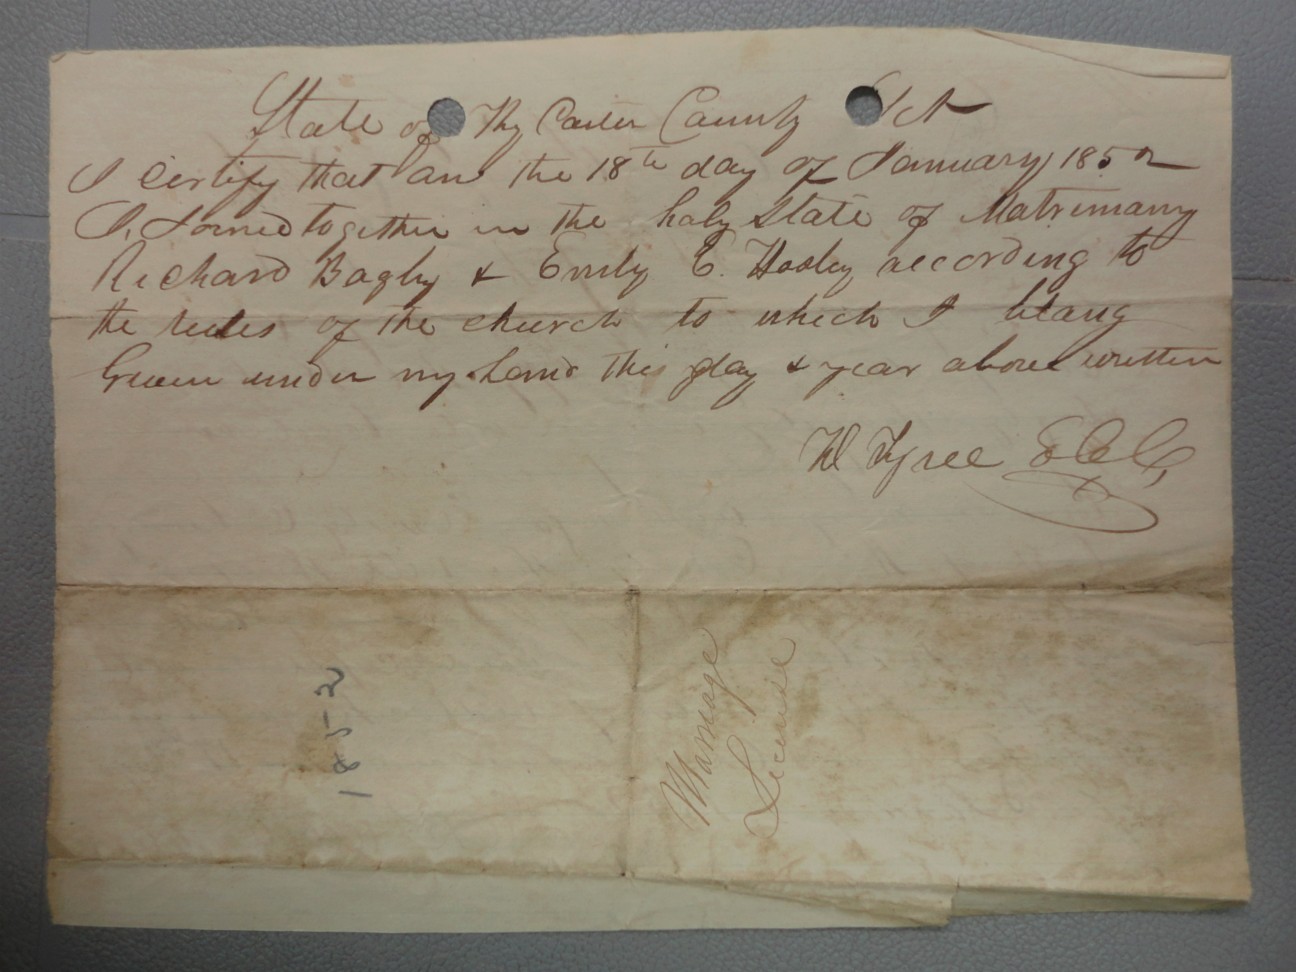 State of Ky Carter County Sct
I certify that on the 18th day of January 1852
I, Joined together in the holy State of Matrimony
Richard Bagby & Emily E. Hosley according to
the rules of the church to which I belong
Given under my hand this day & year above written
W Tyree E C C,
Marriage
License
1852